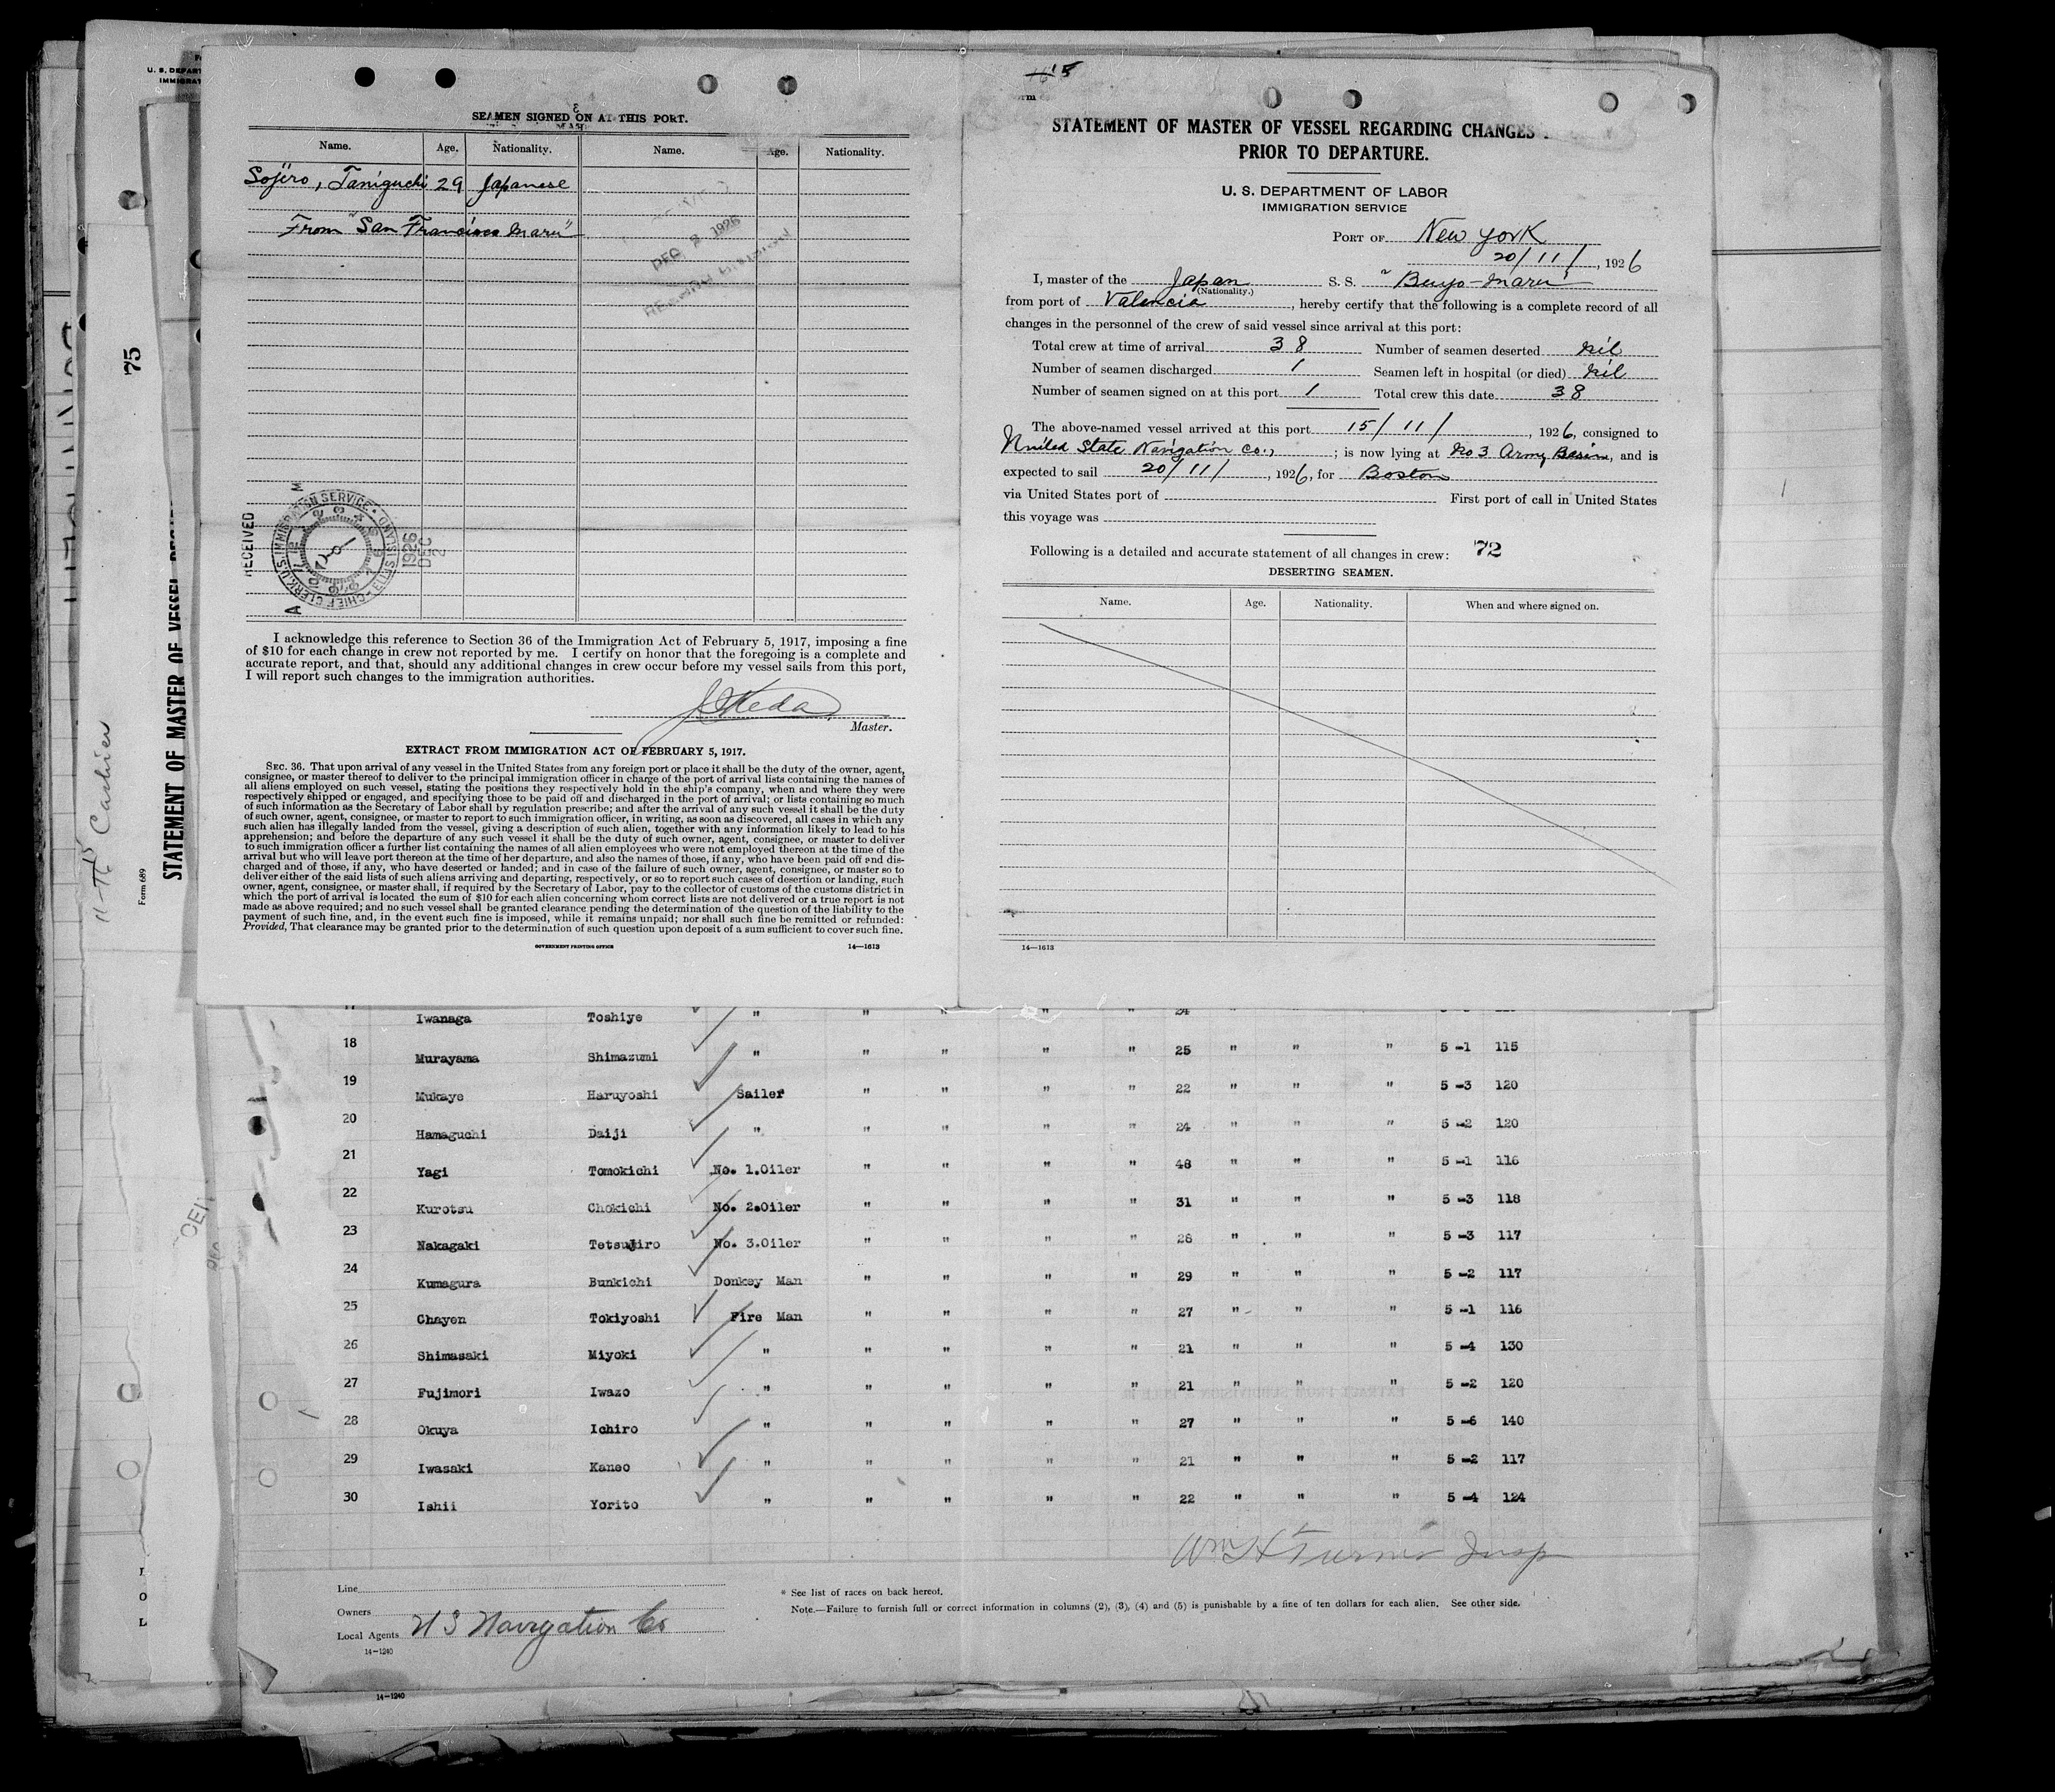 SEAMEN SIGNED ON AT THIS PORT.
Name. Age. Nationality. Name. Age. Nationality.
Sojiro, Taniguchi 29 Japanese
From "San Francisco Maru"
DEC 2 1926
RECEIVED
CHIEF CLERK, U.S. IMMIGRATION SERVICE · ELLIS ISLAND
1926
DEC
2
A
M
I acknowledge this reference to Section 36 of the Immigration Act of February 5, 1917, imposing a fine
of $10 for each change in crew not reported by me. I certify on honor that the foregoing is a complete and
accurate report, and that, should any additional changes in crew occur before my vessel sails from this port,
I will report such changes to the immigration authorities.
Master.
EXTRACT FROM IMMIGRATION ACT OF FEBRUARY 5, 1917.
SEC. 36. That upon arrival of any vessel in the United States from any foreign port or place it shall be the duty of the owner, agent,
consignee, or master thereof to deliver to the principal immigration officer in charge of the port of arrival lists containing the names of
all aliens employed on such vessel, stating the positions they respectively hold in the ship's company, when and where they were
respectively shipped or engaged, and specifying those to be paid off and discharged in the port of arrival; or lists containing so much
of such information as the Secretary of Labor shall by regulation prescribe; and after the arrival of any such vessel it shall be the duty
of such owner, agent, consignee, or master to report to such immigration officer, in writing, as soon as discovered, all cases in which any
such alien has illegally landed from the vessel, giving a description of such alien, together with any information likely to lead to his
apprehension; and before the departure of any such vessel it shall be the duty of such owner, agent, consignee, or master to deliver
to such immigration officer a further list containing the names of all alien employees who were not employed thereon at the time of the
arrival but who will leave port thereon at the time of her departure, and also the names of those, if any, who have been paid off and dis-
charged and of those, if any, who have deserted or landed; and in case of the failure of such owner, agent, consignee, or master so to
deliver either of the said lists of such aliens arriving and departing, respectively, or so to report such cases of desertion or landing, such
owner, agent, consignee, or master shall, if required by the Secretary of Labor, pay to the collector of customs of the customs district in
which the port of arrival is located the sum of $10 for each alien concerning whom correct lists are not delivered or a true report is not
made as above required; and no such vessel shall be granted clearance pending the determination of the question of the liability to the
payment of such fine, and, in the event such fine is imposed, while it remains unpaid; nor shall such fine be remitted or refunded:
Provided, That clearance may be granted prior to the determination of such question upon deposit of a sum sufficient to cover such fine.
GOVERNMENT PRINTING OFFICE 14—1613
STATEMENT OF MASTER OF VESSEL REGARDING CHANGES
PRIOR TO DEPARTURE.
U. S. DEPARTMENT OF LABOR
IMMIGRATION SERVICE
PORT OF New York
20/11/, 1926
I, master of the Japan S. S. "Buyo-Maru"
(Nationality.)
from port of Valencia, hereby certify that the following is a complete record of all
changes in the personnel of the crew of said vessel since arrival at this port:
Total crew at time of arrival 38 Number of seamen deserted Nil
Number of seamen discharged 1 Seamen left in hospital (or died) Nil
Number of seamen signed on at this port 1 Total crew this date 38
The above-named vessel arrived at this port 15/11/, 1926, consigned to
United State Navigation Co., ; is now lying at No 3 Army Basin, and is
expected to sail 20/11/, 1926, for Boston
via United States port of First port of call in United States
this voyage was
Following is a detailed and accurate statement of all changes in crew: 72
DESERTING SEAMEN.
Name. Age. Nationality. When and where signed on.
14—1613
75
11-15 Cashier
Form 689
STATEMENT OF MASTER OF VESSEL
Iwanaga Toshiye " " " " " 24 " " "
18 Murayama Shimazumi " " " " " 25 " " " 5 -1 115
19 Mukaye Haruyoshi Sailer " " " " 22 " " " 5 -3 120
20 Hamaguchi Daiji " " " " " 24 " " " 5 -2 120
21 Yagi Tomokichi No. 1.Oiler " " " " 48 " " " 5 -1 116
22 Kurotsu Chokichi No. 2.Oiler " " " " 31 " " " 5 -3 118
23 Nakagaki Tetsujiro No. 3.Oiler " " " " 28 " " " 5 -3 117
24 Kumagura Bunkichi Donkey Man " " " " 29 " " " 5 -2 117
25 Chayen Tokiyoshi Fire Man " " " " 27 " " " 5 -1 116
26 Shimasaki Miyoki " " " " " 21 " " " 5 -4 130
27 Fujimori Iwazo " " " " " 21 " " " 5 -2 120
28 Okuya Ichiro " " " " " 27 " " " 5 -6 140
29 Iwasaki Kaneo " " " " " 21 " " " 5 -2 117
30 Ishii Yorito " " " " " 22 " " " 5 -4 124
Wm H Turner Insp
Line
Owners
Local Agents U S Navigation Co
14-1240
* See list of races on back hereof.
Note.—Failure to furnish full or correct information in columns (2), (3), (4) and (5) is punishable by a fine of ten dollars for each alien. See other side.
14-1240